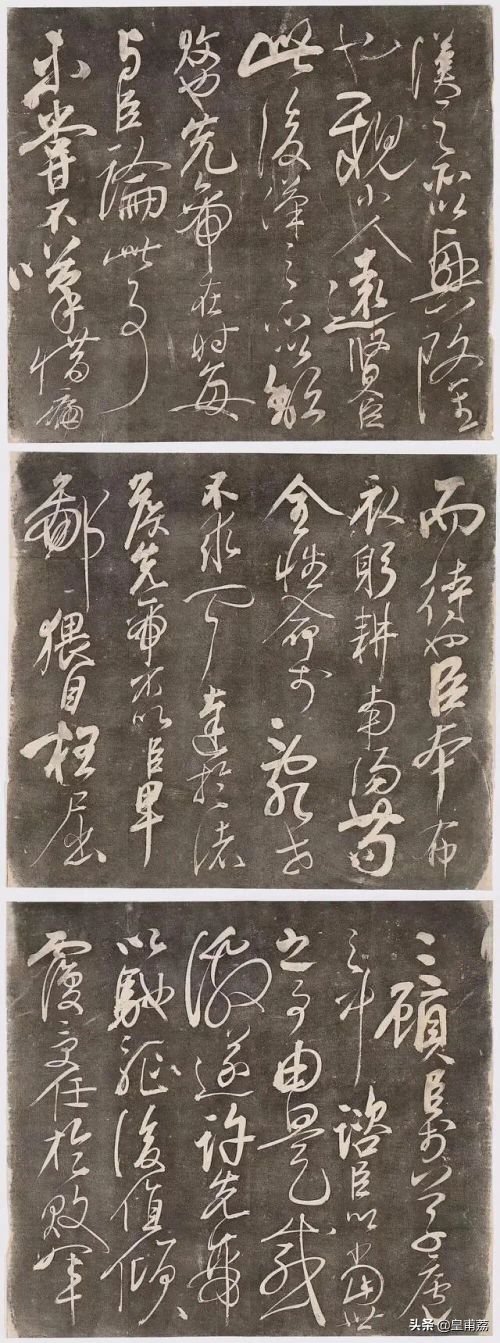 漢之所以興隆
也親小人遠賢臣
此後漢之所以頹
敗也先帝在時每
與臣論此事
未嘗不嘆惜痛
而待也臣本布
衣躬耕南陽苟
全性命於亂世
不求聞達於諸
侯先帝不以臣卑
鄙猥自枉屈
三顧臣於草廬
之中諮臣以當世
之事由是感
激遂許先帝
以馳驅後值傾
覆受任於敗軍
头条 @皇甫荔